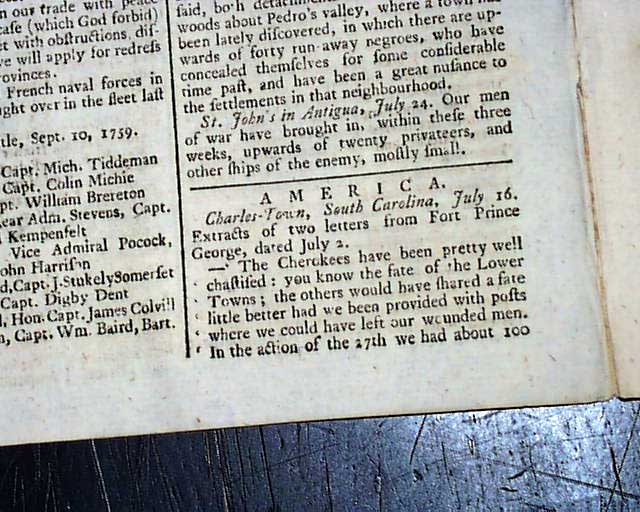 n our trade with peace
cafe (which God forbid)
et with obstructions, dif-
we will apply for redress
rovinces.
French naval forces in
ught over in the fleet last
tle, Sept. 10, 1759.
Capt. Mich. Tiddeman
Capt. Colin Michie
pt. William Brereton
ear Adm. Stevens, Capt.
Kempenfelt
Vice Admiral Pocock,
ohn Harrison
d, Capt. J. Stukely Somerset
Capt. Digby Dent
l, Hon. Capt. James Colvill
n, Capt. Wm. Baird, Bart.
said, both
woods about Pedro's valley, where a town has
been lately discovered, in which there are up-
wards of forty run-away negroes, who have
concealed themselves for some considerable
time past, and have been a great nusance to
the settlements in that neighbourhood.
St. John's in Antigua, July 24. Our men
of war have brought in, within these three
weeks, upwards of twenty privateers, and
other ships of the enemy, mostly small.
AMERICA.
Charles-Town, South Carolina, July 16.
Extracts of two letters from Fort Prince
George, dated July 2.
—' The Cherokees have been pretty well
' chastised: you know the fate of the Lower
' Towns; the others would have shared a fate
' little better had we been provided with posts
' where we could have left our wounded men.
' In the action of the 27th we had about 100